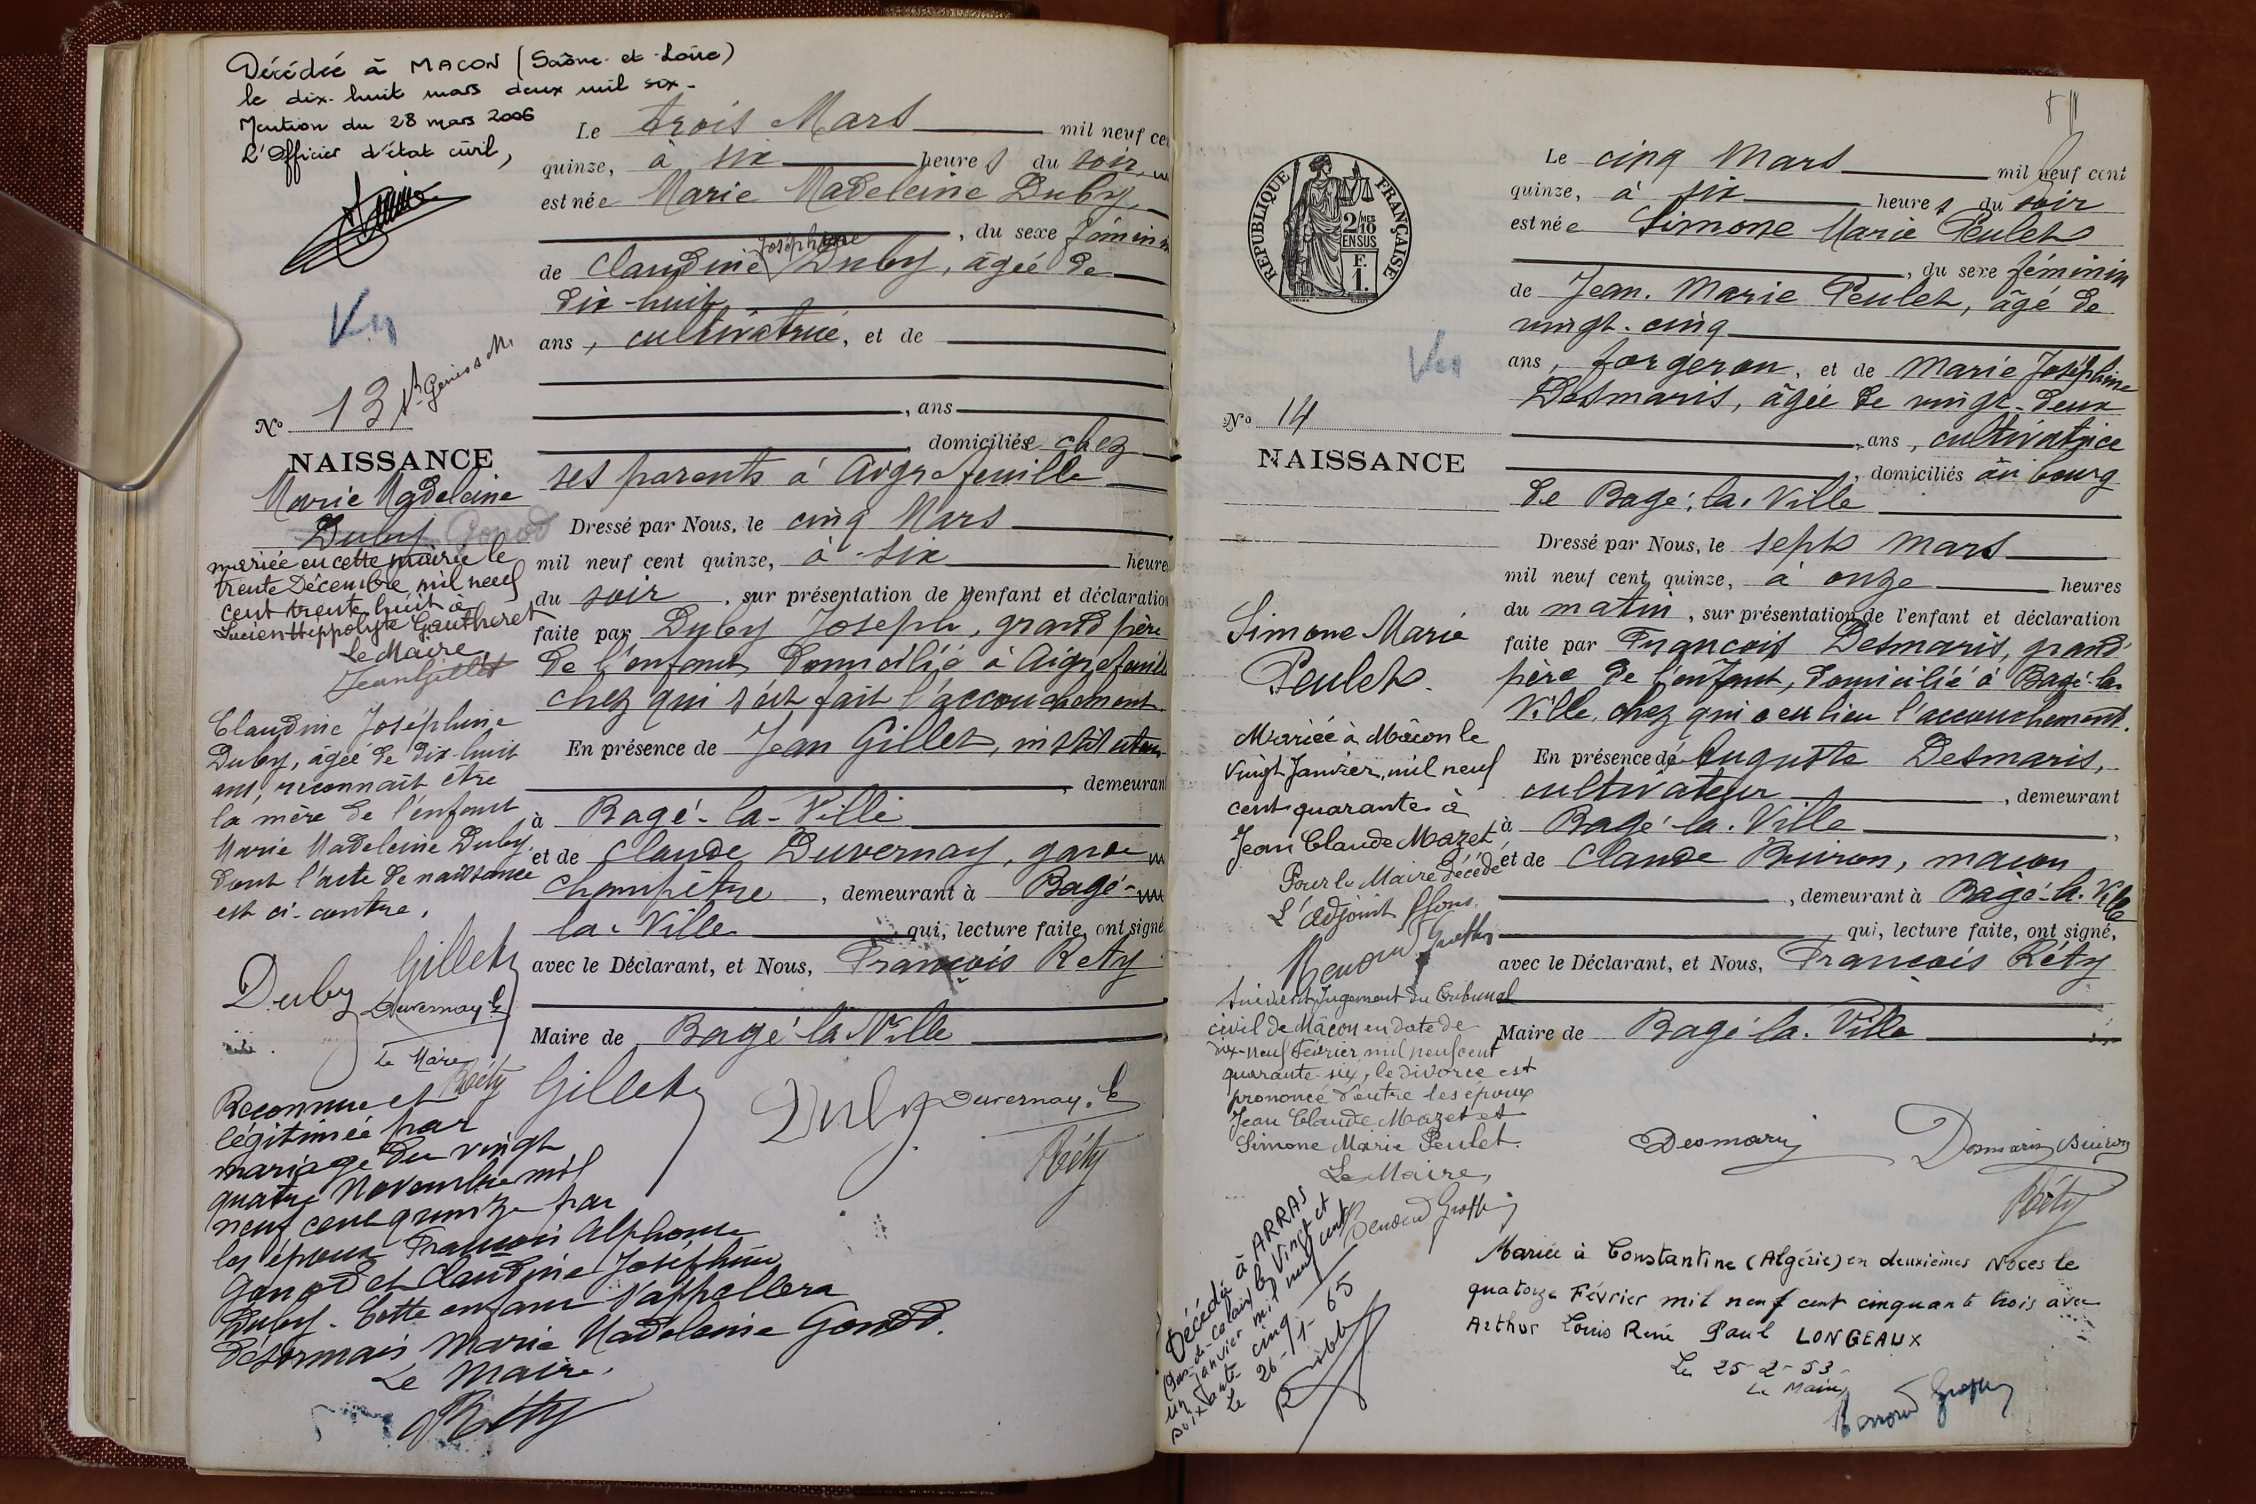 Décédée à MACON (Saône-et-Loire)
le dix-huit mars deux mil six-
Mention du 28 mars 2006
L'Officier d'état civil,
Vu
N° 13
NAISSANCE
Marie Madeleine
Duby Gonod
mariée en cette mairie le
trente Décembre mil neuf
cent trente huit à
Lucien Hippolyte Gautheret
Le Maire,
Jean Gillet
Claudine Joséphine
Duby, âgée de dix-huit
ans, reconnaît être
la mère de l'enfant
Marie Madeleine Duby,
dont l'acte de naissance
est ci-contre.
Duby Gillet
Duvernay
Le Maire
Réty
Reconnue et
légitimée par
mariage du vingt
quatre Novembre mil
neuf cent quinze par
les époux François Alphonse
Gonod et Claudine Joséphine
Duby. Cette enfant s'appellera
désormais Marie Madeleine Gonod.
Le Maire.
Réty
Le trois Mars mil neuf cen
quinze, à six heures du soir,
est née Marie Madeleine Duby
, du sexe féminin
Joséphine
de Claudine Duby, âgée de
dix-huit
ans, cultivatrice, et de
, ans
domiciliée chez
ses parents à Aigrefeuille
Dressé par Nous, le cinq Mars
mil neuf cent quinze, à six heures
du soir, sur présentation de l'enfant et déclaration
faite par Duby Joseph, grand père
de l'enfant, domicilié à Aigrefeuille
chez qui s'est fait l'accouchement.
En présence de Jean Gillet, instituteur
, demeurant
à Bagé-la-Ville
et de Claude Duvernay, garde
champêtre, demeurant à Bagé-
la-Ville qui, lecture faite, ont signé
avec le Déclarant, et Nous, François Réty
Maire de Bagé-la-Ville
Gillet Duby Duvernay
Réty
RÉPUBLIQUE FRANÇAISE
2/10 MES
EN SUS
F.
1.
Vu
N° 14
NAISSANCE
Simone Marie
Peulet.
Mariée à Mâcon le
vingt Janvier, mil neuf
cent quarante à
Jean Claude Mazet
Pour le Maire Décédé
L'adjoint
Renoud Groffin
Suivant Jugement du Tribunal
civil de Mâcon en date de
dix-neuf Février mil neuf cent
quarante-six, le divorce est
prononcé d'entre les époux
Jean Claude Mazet et
Simone Marie Peulet.
Le Maire,
Renoud Groffin
Décédée à ARRAS
(Pas-de-Calais) le Vingt et
un Janvier mil neuf cent
soixante cinq
Le 26-1-65
Le cinq Mars mil neuf cent
quinze, à six heures du soir
est née Simone Marie Peulet
, du sexe féminin
de Jean-Marie Peulet, âgé de
vingt-cinq
ans, forgeron, et de Marie Joséphine
Desmaris, âgée de vingt-deux
ans, cultivatrice
, domiciliés au bourg
de Bagé-la-Ville
Dressé par Nous, le sept mars
mil neuf cent quinze, à onze heures
du matin, sur présentation de l'enfant et déclaration
faite par François Desmaris, grand
père de l'enfant, domicilié à Bagé-la-
Ville, chez qui a eu lieu l'accouchement.
En présence de Auguste Desmaris,
cultivateur, demeurant
à Bagé-la-Ville,
et de Claude Buiron, maçon
, demeurant à Bagé-la-Ville
qui, lecture faite, ont signé,
avec le Déclarant, et Nous, François Réty
Maire de Bagé-la-Ville
Desmaris Desmaris Buiron
Réty
Mariée à Constantine (Algérie) en deuxièmes Noces le
quatorze Février mil neuf cent cinquante trois avec
Arthur Louis René Paul LONGEAUX
Le 25-2-53-
Le Maire,
Renoud Groffin